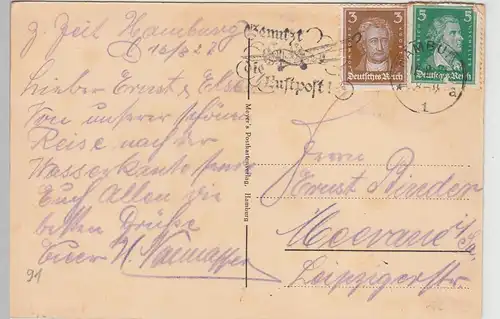 z. Zeit Hamburg
16/8 27
Lieber Ernst & Else
Von unserer schönen
Reise nach der
Wasserkante
Euch Allen die
besten Grüße
Euer H.
91
Meyer's Postkartenverlag, Hamburg
Benutzt
die
Luftpost!
3 3
Deutsches Reich
5 5
Deutsches Reich
HAMBU
1 a
Herrn
Ernst Binder
Meerane i/Sa
Leipzigerstr